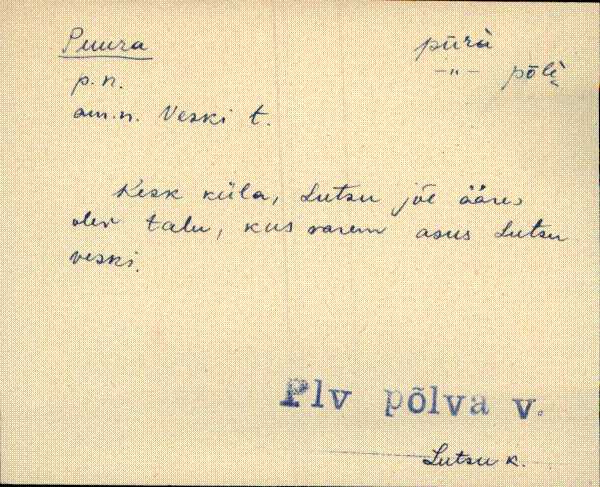 Puura
pūrà
p.n.
–"– põlè
am.n. Veski t.
Kesk küla, Lutsu jõe ääres
olev talu, kus varem asus Lutsu
veski.
Plv põlva v.
Lutsu k.